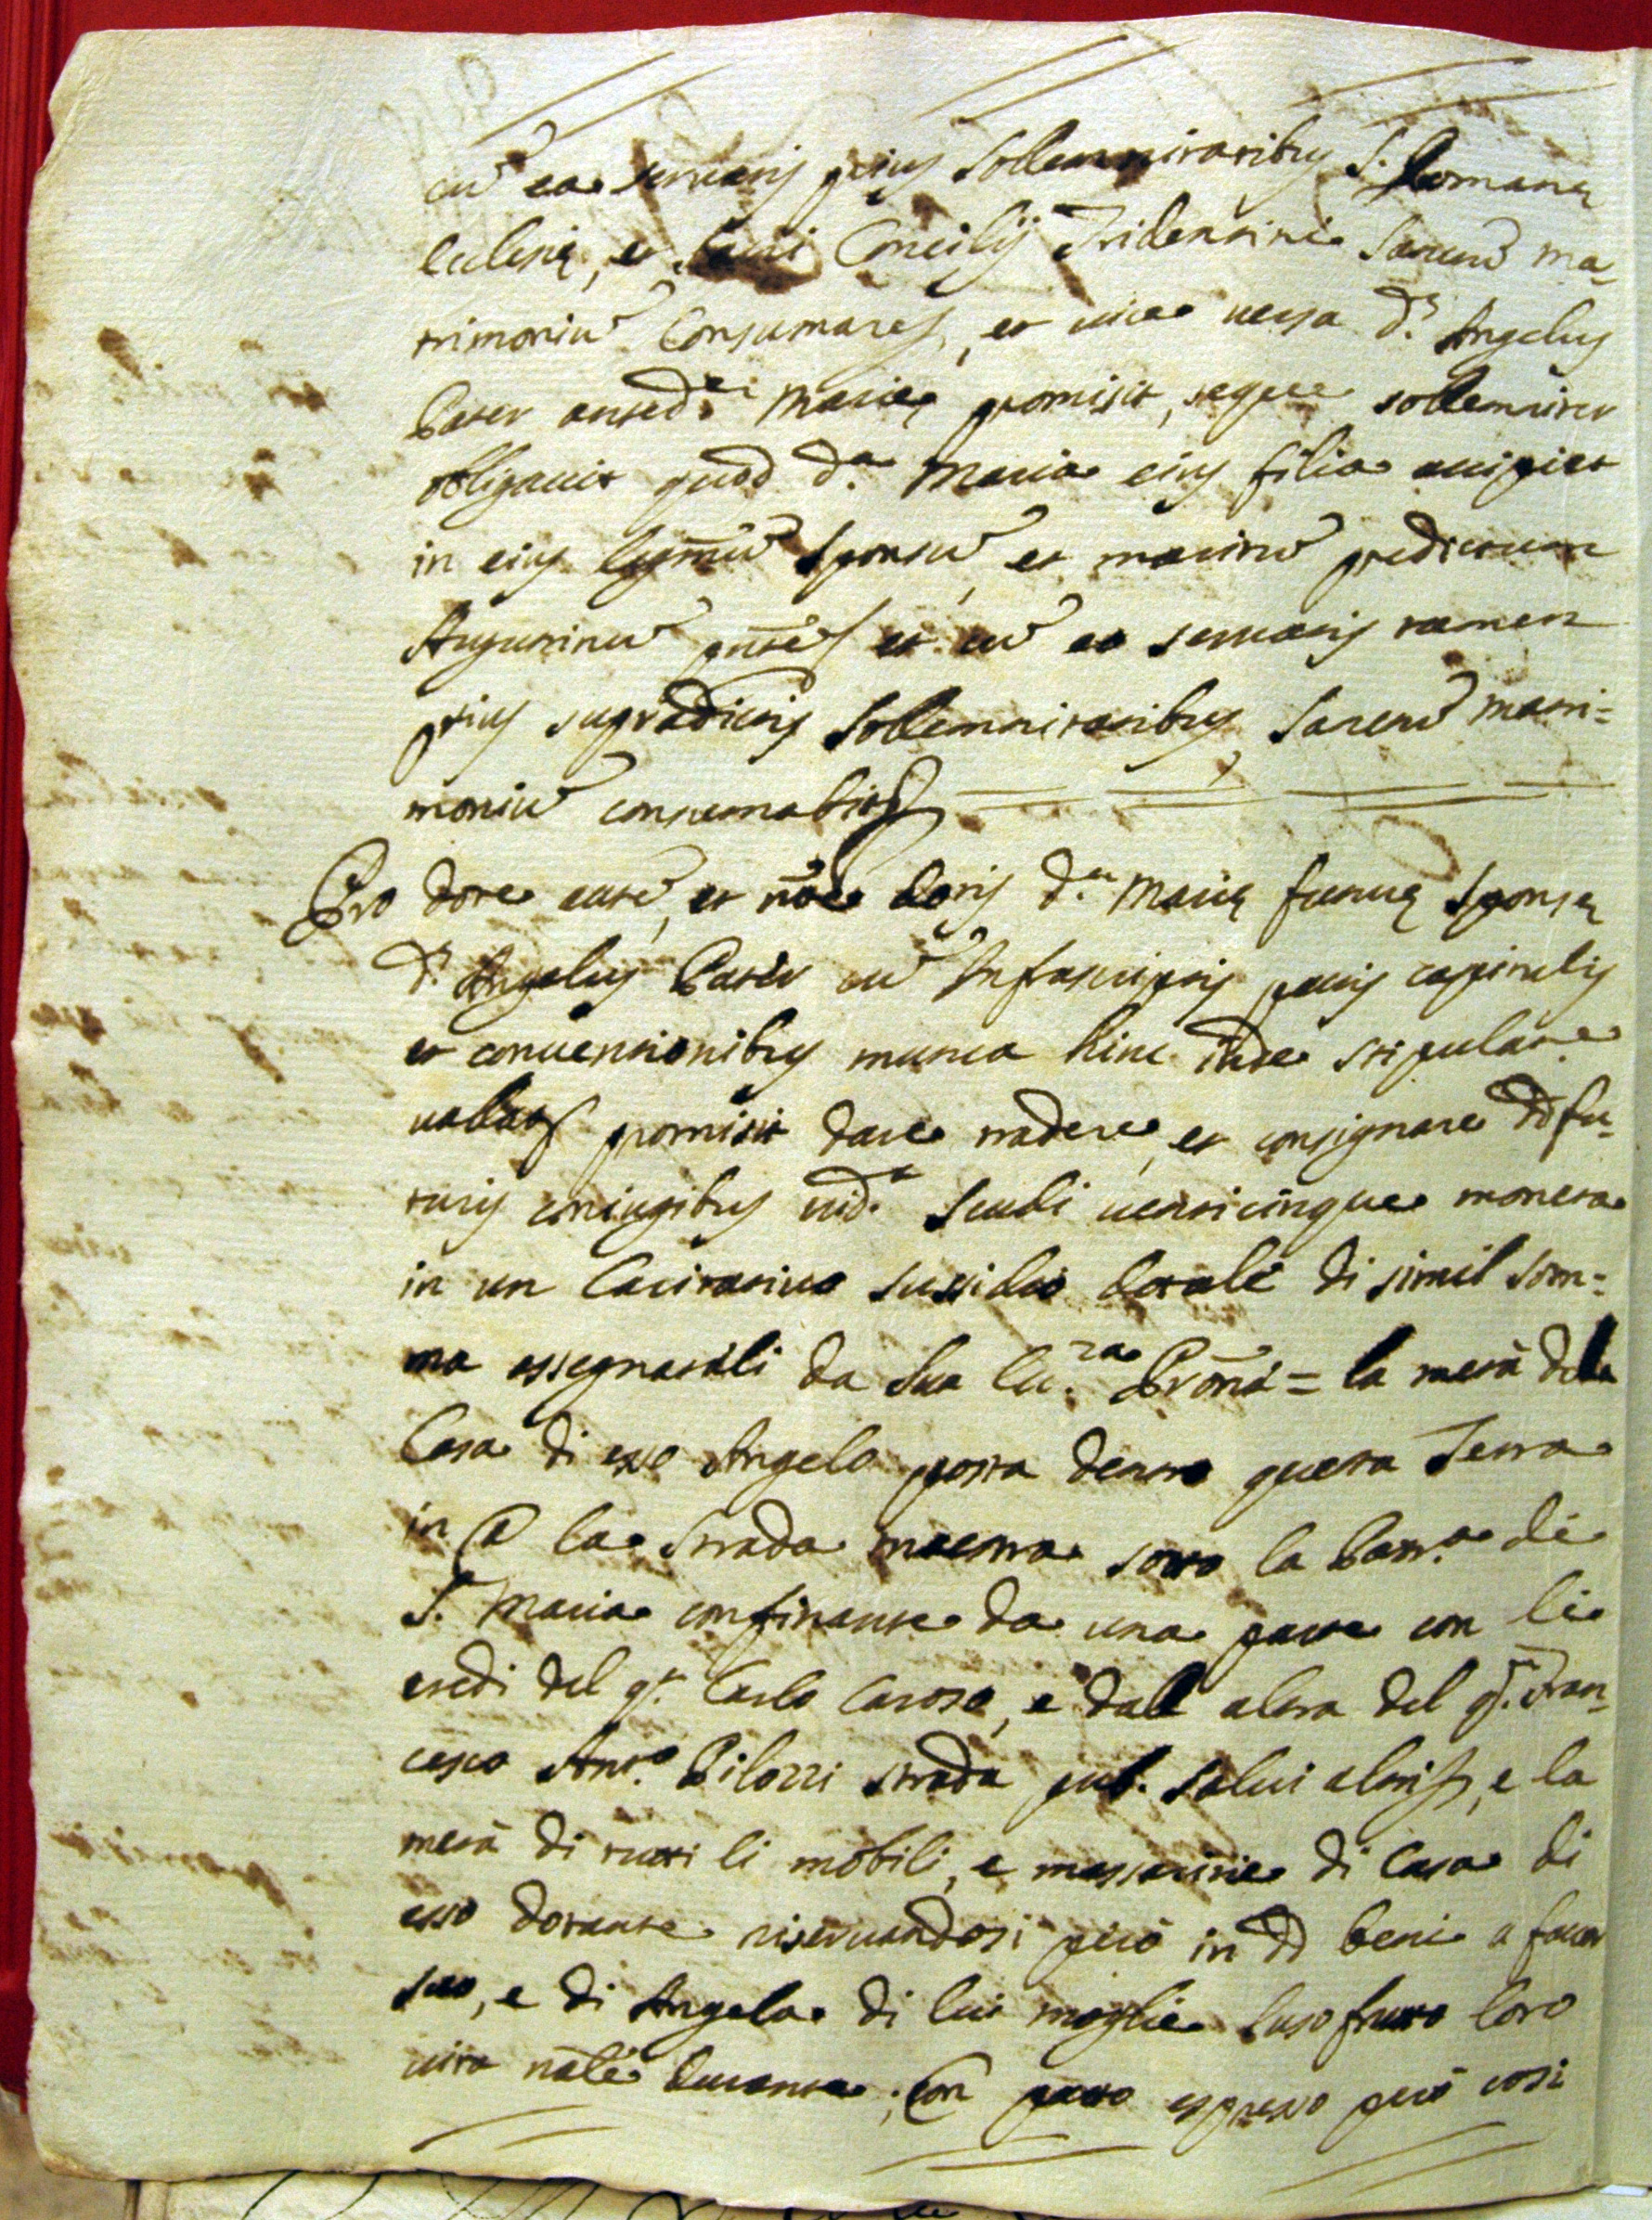 cū ea servatis prius sollemnitatibus S. Romanę
Eclesię, et Sacri Concilij Tridentini Sanctū ma-
trimoniū Consumare, et vice versa d.s Angelus
Pater anted.ę Marię promisit, seque sollemniter
obligavit quod d.a Maria eius filia accipiet
in eius legmū Sponsū et maritū predictum
Augustinū pntē et cū eo servatis tamen
prius supradictis sollemnitatibus Sanctū matri=
moniū consumabit
Pro dote autē, et noē dotis d.ę Marię futurę Sponsę
d.s Angelus Pater cū Infrascriptis pactis capitulis
et conventionibus mutua hinc inde stipulat.e
vallat promisit dare tradere, et consignare dd fu-
turis coniugibus vid.t Scudi venticinque moneta
in un Caritativo sussidio dotale di simil som=
ma assegnatali da Sua Ecc.za Pronā = la metà della
Casa di esso Angelo posta dentro questa Terra
in la Strada maestra sotto la Parr.a di
S. Maria confinante da una parte con li
eredi del q.m Carlo Caroso, e dall altra del q.m Fran-
cesco Ant.o Pilozzi strada pub. salvi altri, e la
metà di tutti li mobili, e massaritie di Casa di
esso dotante riservandosi però in dd beni a favor
suo, e di Angela di lui moglie lusofrutto loro
vita nāle durante; Con patto espresso però così